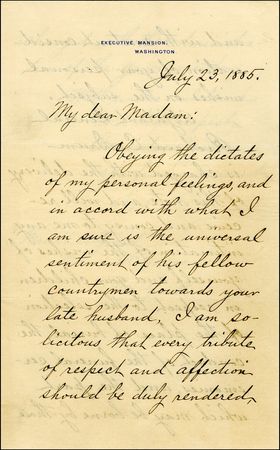 EXECUTIVE MANSION,
WASHINGTON
July 23, 1885.
My dear Madam:
Obeying the dictates
of my personal feelings, and
in accord with what I
am sure is the universal
sentiment of his fellow
countrymen towards your
late husband, I am so-
licitous that every tribute
of respect and affection
should be duly rendered,